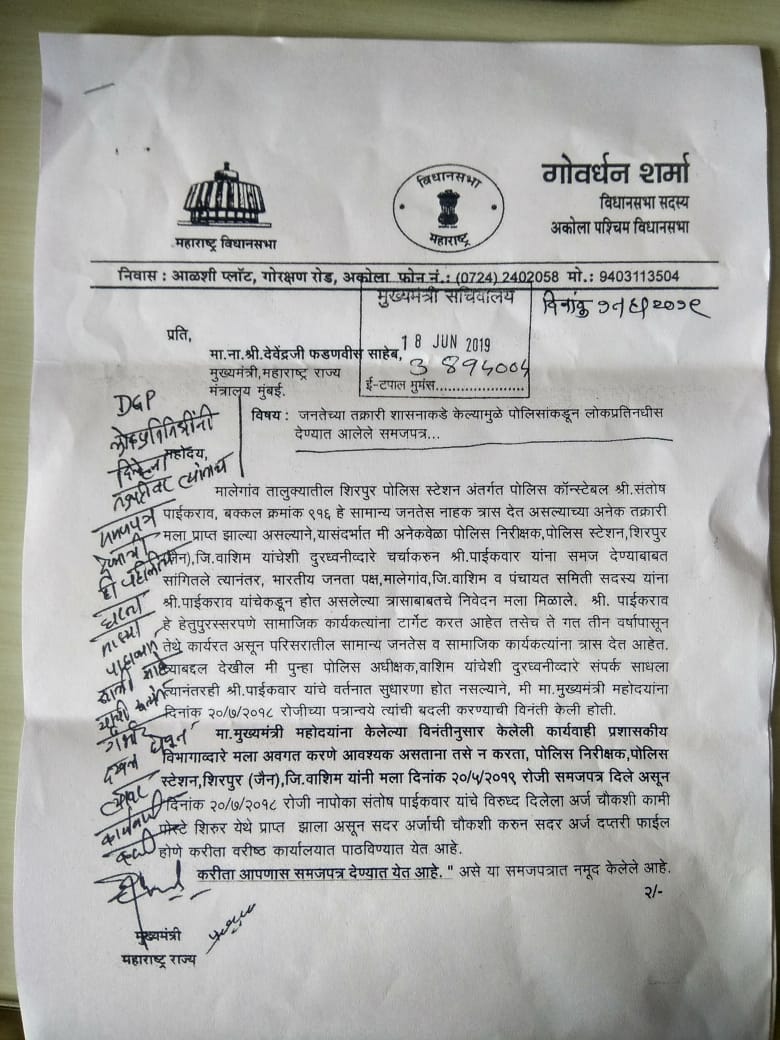 विधानसभा
महाराष्ट्र
महाराष्ट्र विधानसभा
गोवर्धन शर्मा
विधानसभा सदस्य
अकोला पश्चिम विधानसभा
निवास : आळशी प्लॉट, गोरक्षण रोड, अकोला फोन नं.: (0724) 2402058 मो.: 9403113504
मुख्यमंत्री सचिवालय
दिनांक
18 JUN 2019
ई-टपाल मुमंस..................
प्रति,
मा.ना.श्री.देवेंद्रजी फडणवीस साहेब,
मुख्यमंत्री,महाराष्ट्र राज्य
मंत्रालय मुंबई.
विषय : जनतेच्या तक्रारी शासनाकडे केल्यामुळे पोलिसांकडून लोकप्रतिनधीस
देण्यात आलेले समजपत्र...
महोदय,
मालेगांव तालुक्यातील शिरपुर पोलिस स्टेशन अंतर्गत पोलिस कॉन्स्टेबल श्री.संतोष
पाईकराव, बक्कल क्रमांक ९१६ हे सामान्य जनतेस नाहक त्रास देत असल्याच्या अनेक तक्रारी
मला प्राप्त झाल्या असल्याने,यासंदर्भात मी अनेकवेळा पोलिस निरीक्षक,पोलिस स्टेशन,शिरपुर
(जैन),जि.वाशिम यांचेशी दुरध्वनीव्दारे चर्चाकरुन श्री.पाईकवार यांना समज देण्याबाबत
सांगितले त्यानंतर, भारतीय जनता पक्ष,मालेगांव,जि.वाशिम व पंचायत समिती सदस्य यांना
श्री.पाईकराव यांचेकडुन होत असलेल्या त्रासाबाबतचे निवेदन मला मिळाले. श्री. पाईकराव
हे हेतुपुरस्सरपणे सामाजिक कार्यकत्यांना टार्गेट करत आहेत तसेच ते गत तीन वर्षापासून
तेथे कार्यरत असून परिसरातील सामान्य जनतेस व सामाजिक कार्यकत्यांना त्रास देत आहेत.
याबद्दल देखील मी पुन्हा पोलिस अधीक्षक,वाशिम यांचेशी दुरध्वनीव्दारे संपर्क साधला
त्यानंतरही श्री.पाईकवार यांचे वर्तनात सुधारणा होत नसल्याने, मी मा.मुख्यमंत्री महोदयांना
दिनांक २०/७/२०१८ रोजीच्या पत्रान्वये त्यांची बदली करण्याची विनंती केली होती.
मा.मुख्यमंत्री महोदयांना केलेल्या विनंतीनुसार केलेली कार्यवाही प्रशासकीय
विभागाव्दारे मला अवगत करणे आवश्यक असताना तसे न करता, पोलिस निरीक्षक,पोलिस
स्टेशन,शिरपुर (जैन),जि.वाशिम यांनी मला दिनांक २०/५/२०१९ रोजी समजपत्र दिले असून
दिनांक २०/७/२०१८ रोजी नापोका संतोष पाईकवार यांचे विरुध्द दिलेला अर्ज चौकशी कामी
पोस्टे शिरुर येथे प्राप्त झाला असून सदर अर्जाची चौकशी करुन सदर अर्ज दप्तरी फाईल
होणे करीता वरीष्ठ कार्यालयात पाठविण्यात येत आहे.
करीता आपणास समजपत्र देण्यात येत आहे. " असे या समजपत्रात नमूद केलेले आहे.
२/-
DGP
लोकप्रतिनिधींनी
समजपत्र
मुख्यमंत्री
महाराष्ट्र राज्य